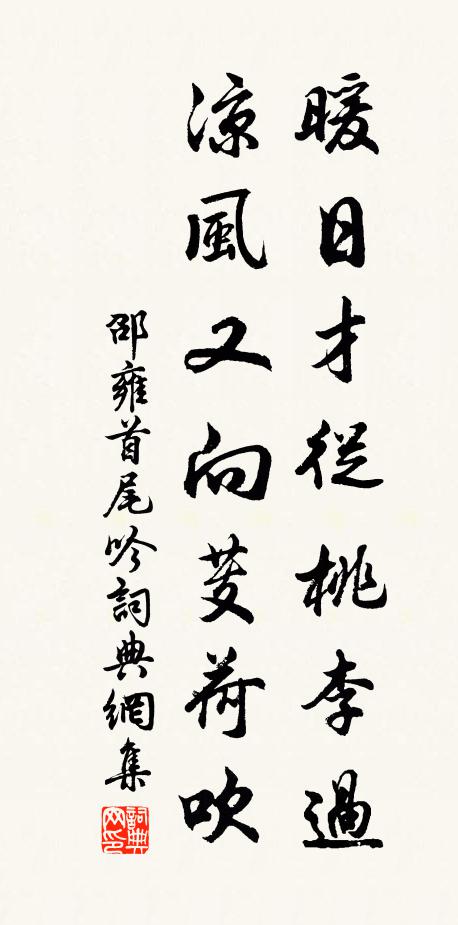 暖日才從桃李過
涼風又向芰荷吹
邵雍首尾吟詞典網集
詞典網印